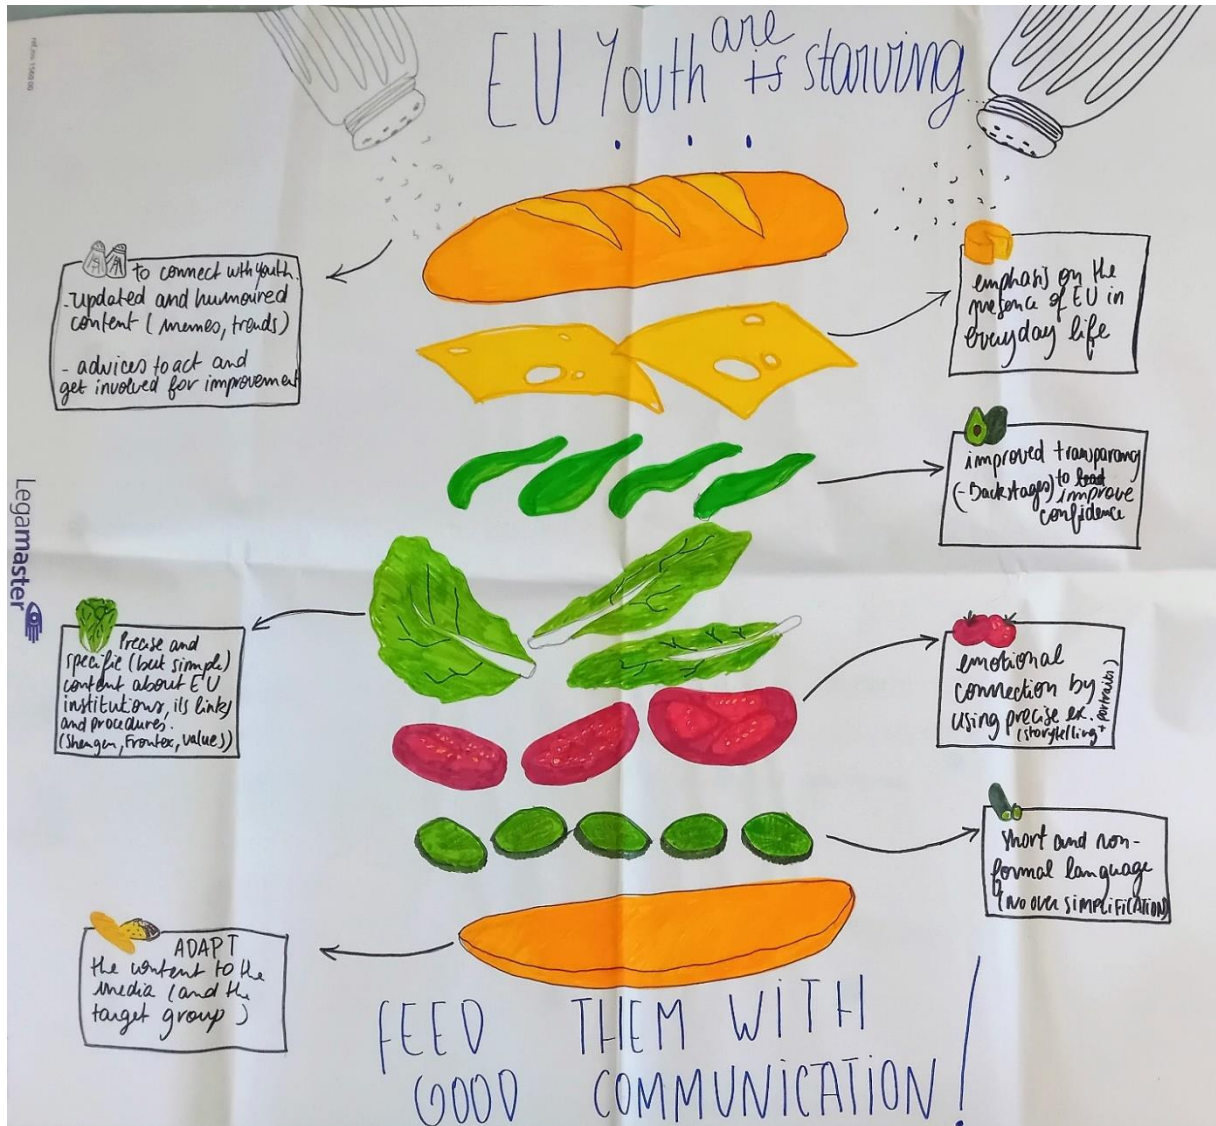 EU Youth are is starving
...
to connect with youth.
- updated and humoured
content (memes, trends)
- advices to act and
get involved for improvement
emphasis on the
presence of EU in
everyday life
improved transparancy
(- Backstages) to lead improve
confidence
Precise and
specific (but simple)
content about EU
institutions, its links
and procedures.
(Shengen, Frontex, value))
emotional
connection by
using precise ex.
(storytelling +
portraits)
short and non-
formal language
(NO OVER SIMPLIFICATION)
ADAPT
the content to the
media (and the
target group)
FEED THEM WITH
GOOD COMMUNICATION!
Legamaster